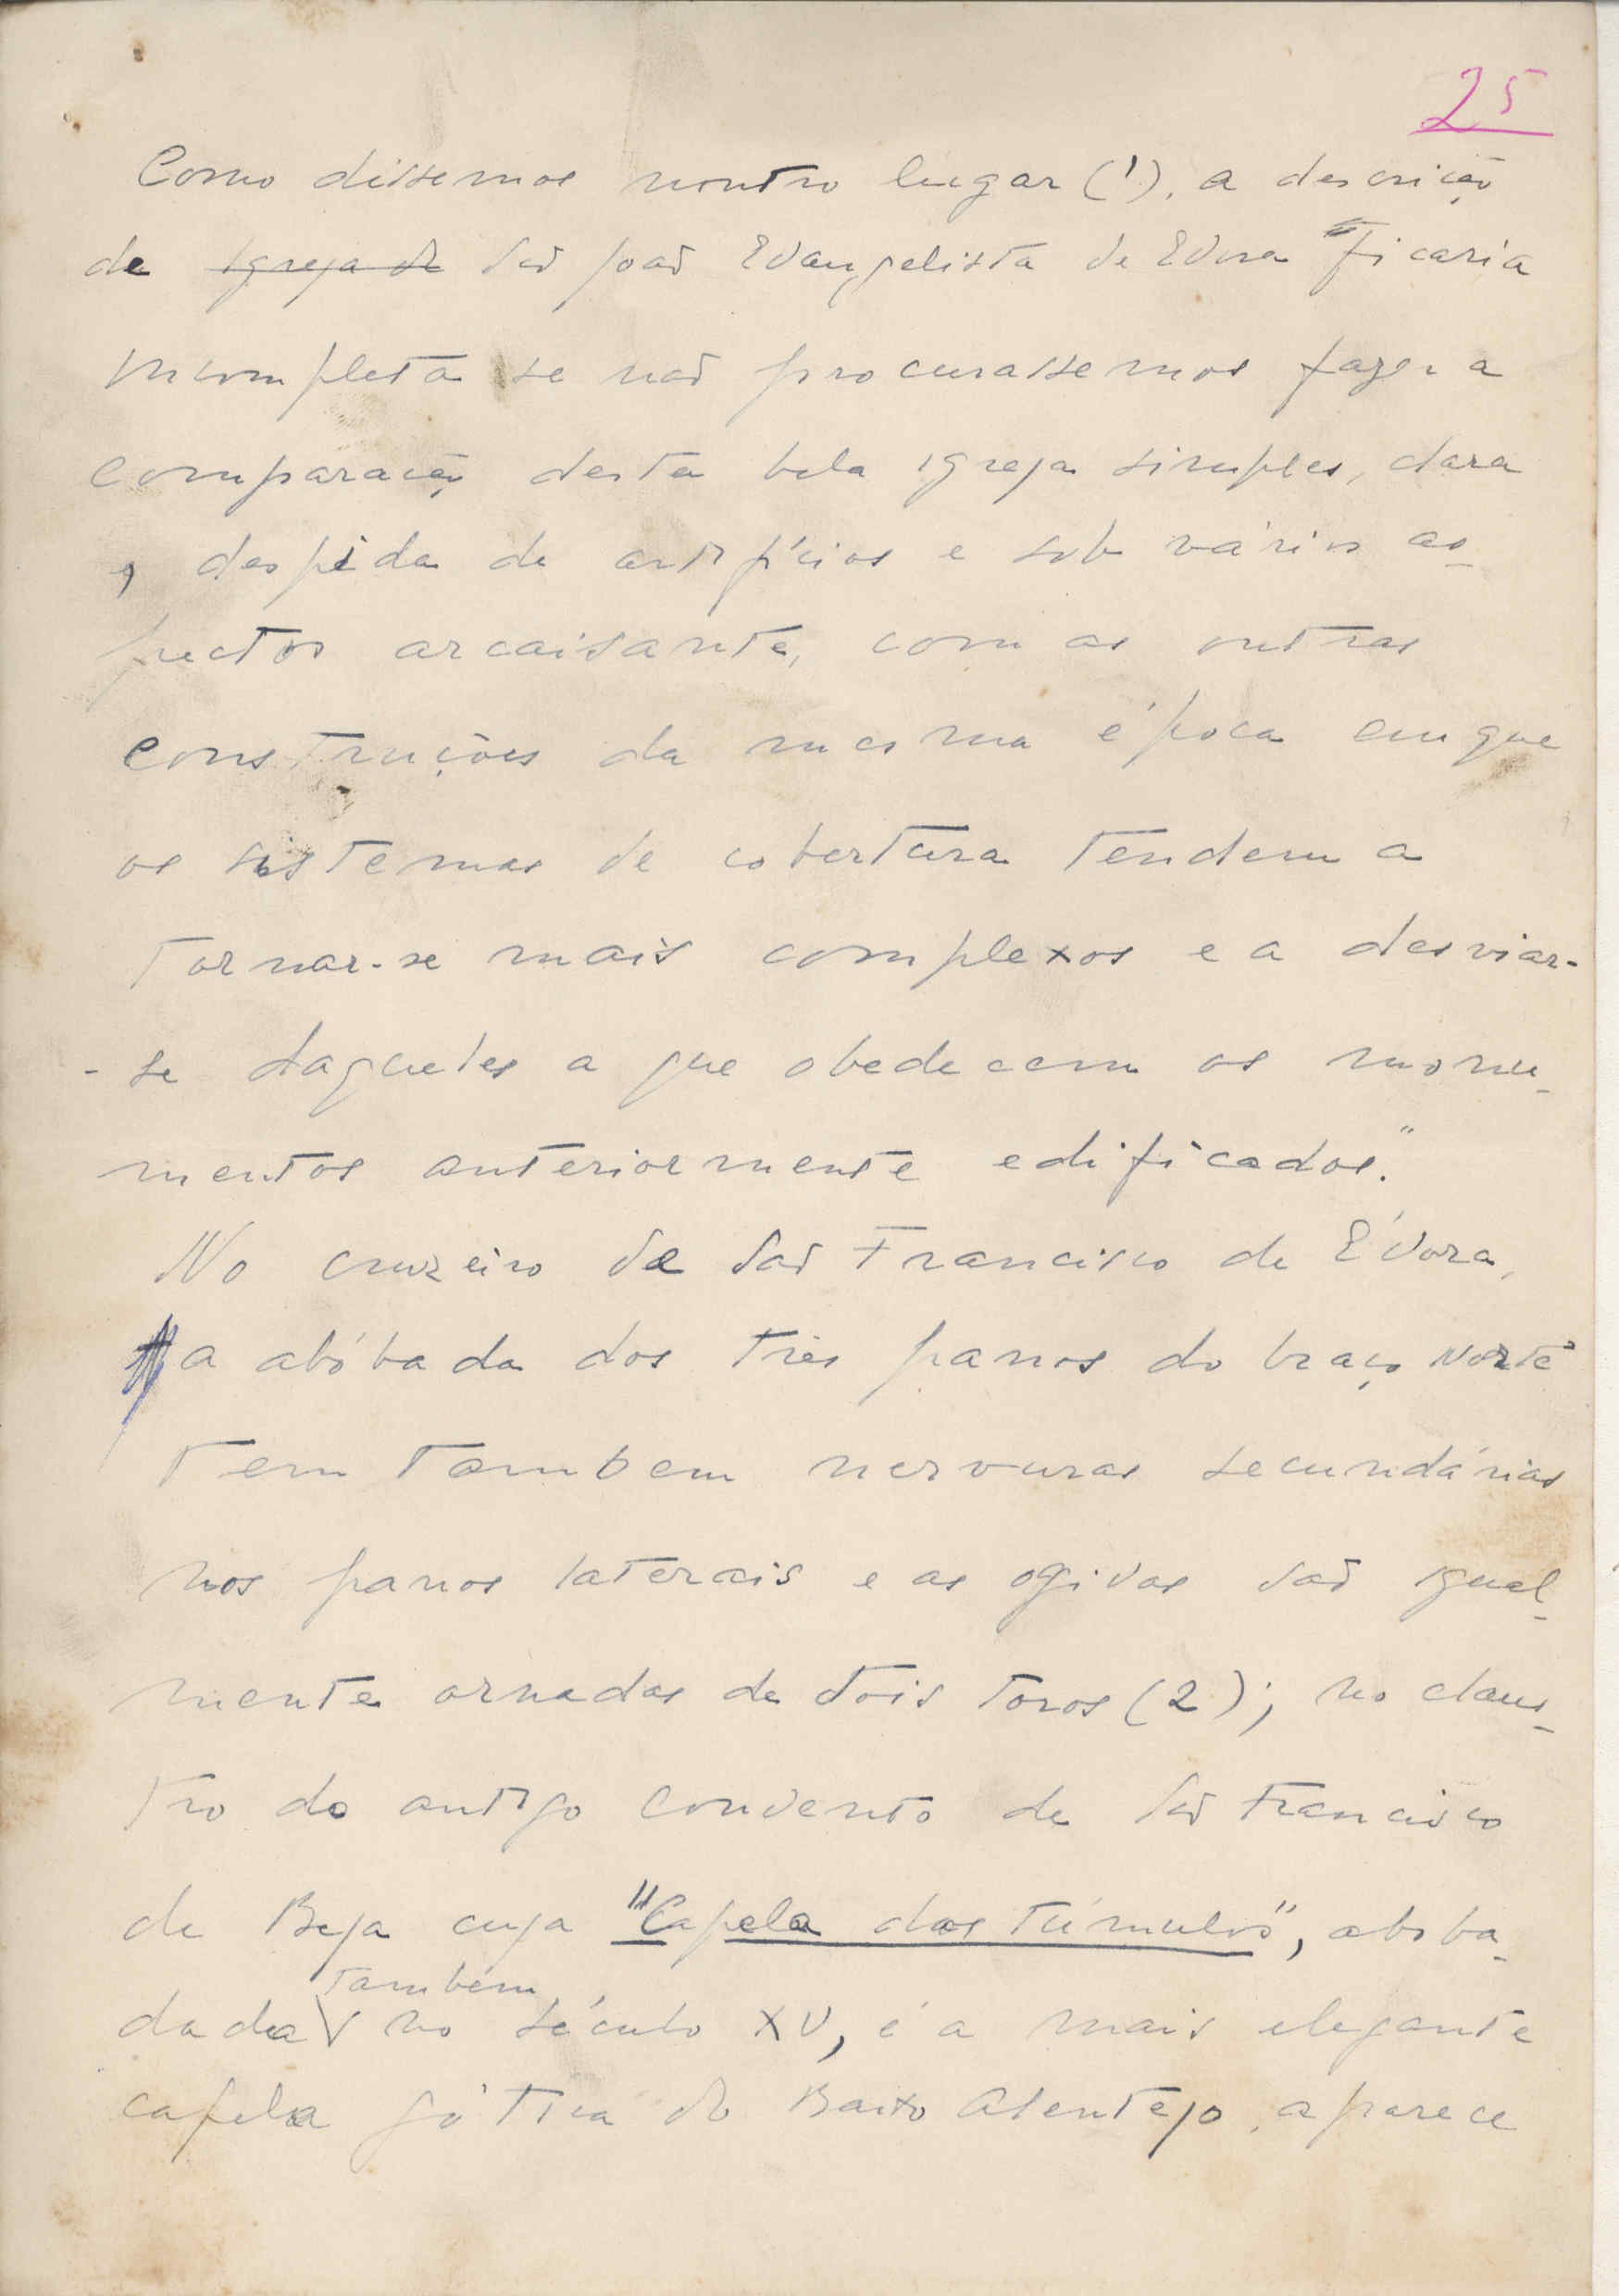 25
Como dissemos noutro lugar (1), a descrição
de Igreja de São João Evangelista de Evora "ficaria
incompleta se não procurassemos fazer a
comparação desta bela igreja simples, clara
, despida de artifícios e sob vários as-
pectos arcaisante, com as outras
construções da mesma época em que
os sistemas de cobertura tendem a
tornar-se mais complexos e a desviar-
-se daqueles a que obedecem os monu-
mentos anteriormente edificados."
No cruzeiro de São Francisco de Évora,
a abóbada dos três panos do braço Norte
tem tambem nervuras secundárias
nos panos laterais e as ogivas são igual-
mente ornadas de dois toros (2); no claus-
tro do antigo convento de São Francisco
de Beja cuja "Capela dos Túmulos", aboba-
também
dada no século XV, é a mais elegante
capela gótica do Baixo Alentejo, aparece